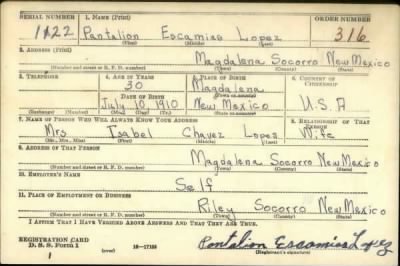 SERIAL NUMBER 1. NAME (Print) ORDER NUMBER
1122 Pantalion Escamias Lopez 316
(First) (Middle) (Last)
2. ADDRESS (Print)
Magdalena Socorro New Mexico
(Number and street or R. F. D. number) (Town) (County) (State)
3. TELEPHONE 4. AGE IN YEARS 5. PLACE OF BIRTH 6. COUNTRY OF CITIZENSHIP
30 Magdalena
DATE OF BIRTH (Town or county)
July 10 1910 New Mexico U.S.A
(Exchange) (Number) (Mo.) (Day) (Yr.) (State or country)
7. NAME OF PERSON WHO WILL ALWAYS KNOW YOUR ADDRESS 8. RELATIONSHIP OF THAT PERSON
Mrs Isabel Chavez Lopes Wife
(Mr., Mrs., Miss) (First) (Middle) (Last)
9. ADDRESS OF THAT PERSON
Magdalena Socorro New Mexico
(Number and street or R. F. D. number) (Town) (County) (State)
10. EMPLOYER'S NAME
Self
11. PLACE OF EMPLOYMENT OR BUSINESS
Riley Socorro New Mexico
(Number and street or R. F. D. number) (Town) (County) (State)
I AFFIRM THAT I HAVE VERIFIED ABOVE ANSWERS AND THAT THEY ARE TRUE.
REGISTRATION CARD
D. S. S. Form 1 (over) 16-17105 Pantalion Escamias Lopez
1 (Registrant's signature)